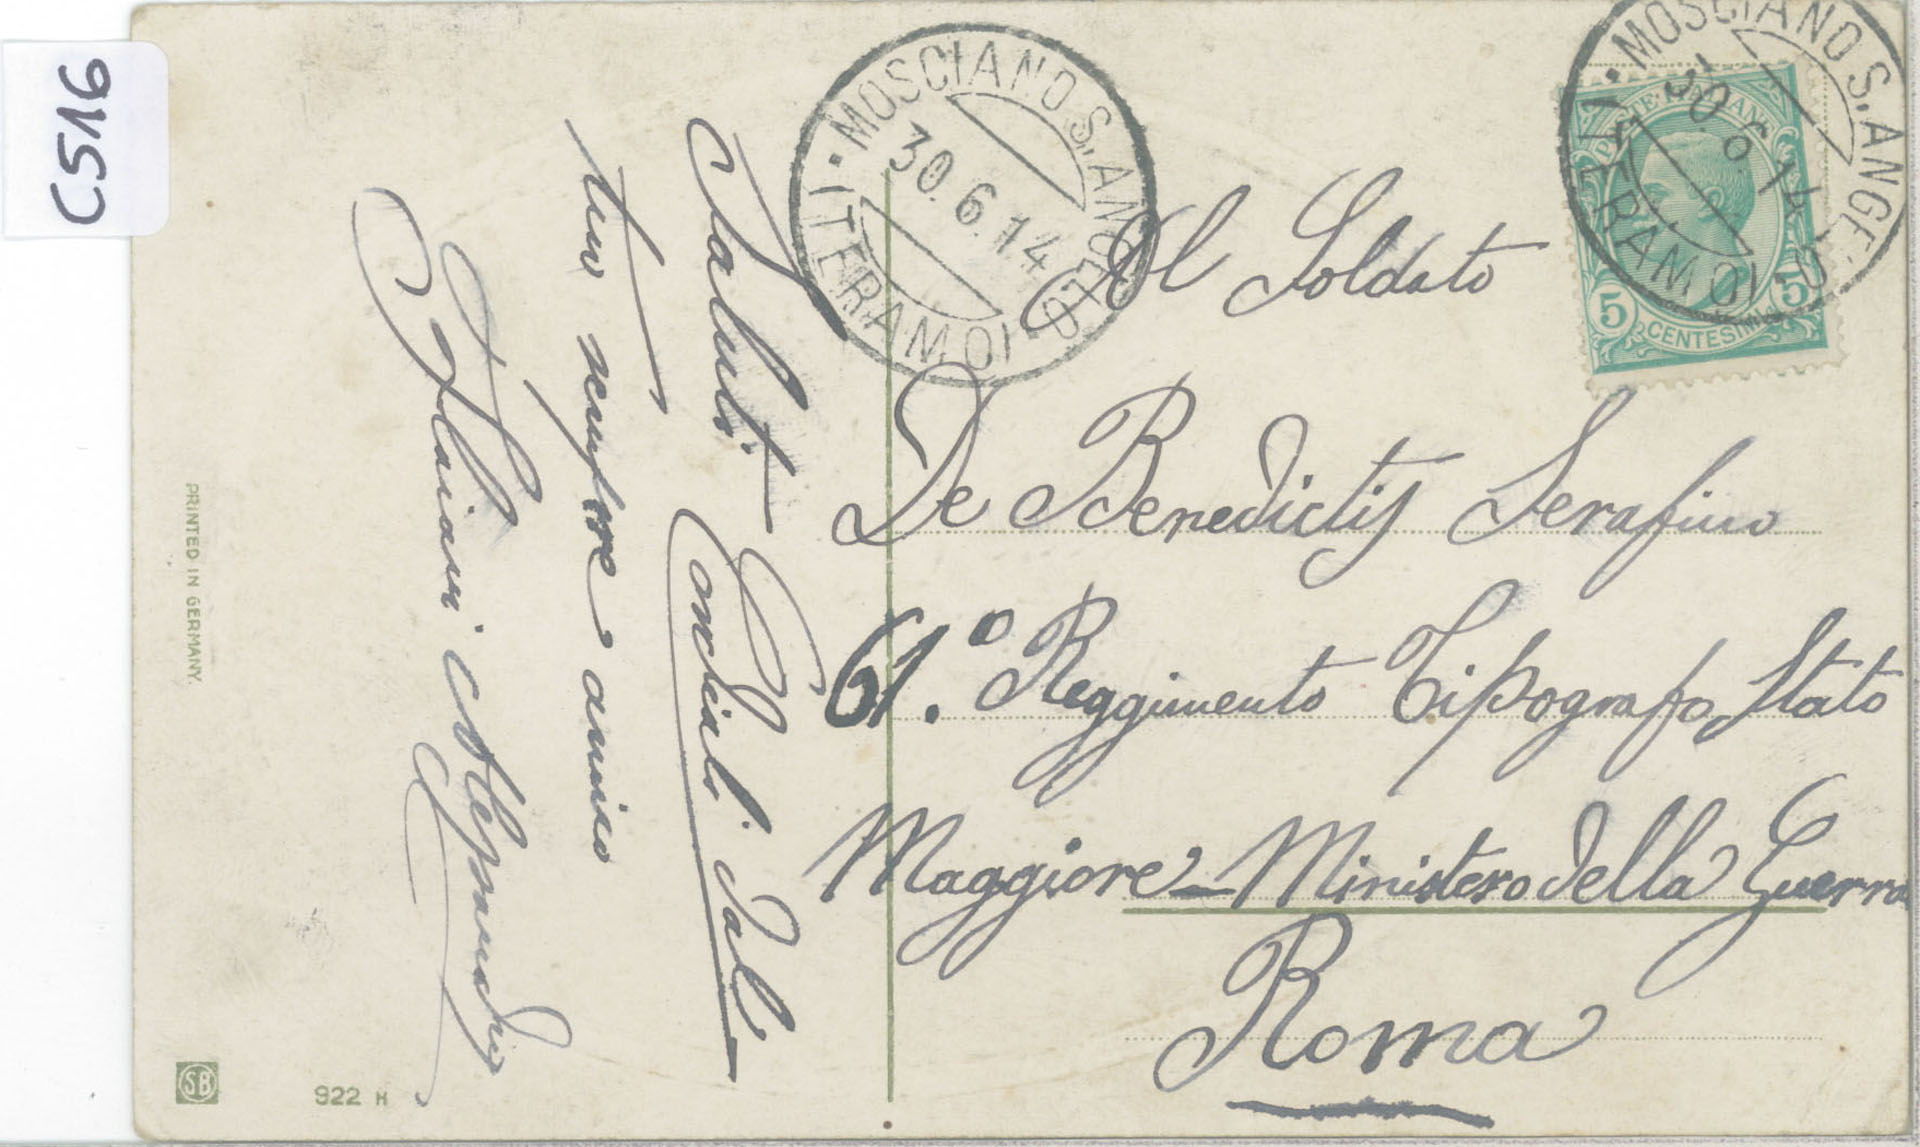 C516
MOSCIANO S. ANGELO
30.6.14
(TERAMO)
MOSCIANO S. ANGELO
30.6.14
(TERAMO)
POSTE ITALIANE
5 CENTESIMI 5
Al Soldato
De Benedictis Serafino
61.º Reggimento Tipografo Stato
Maggiore - Ministero della Guerra
Roma
Saluti Cordiali dal
tuo sempre amico
Flaiani Alessandro
PRINTED IN GERMANY.
SB
922 H